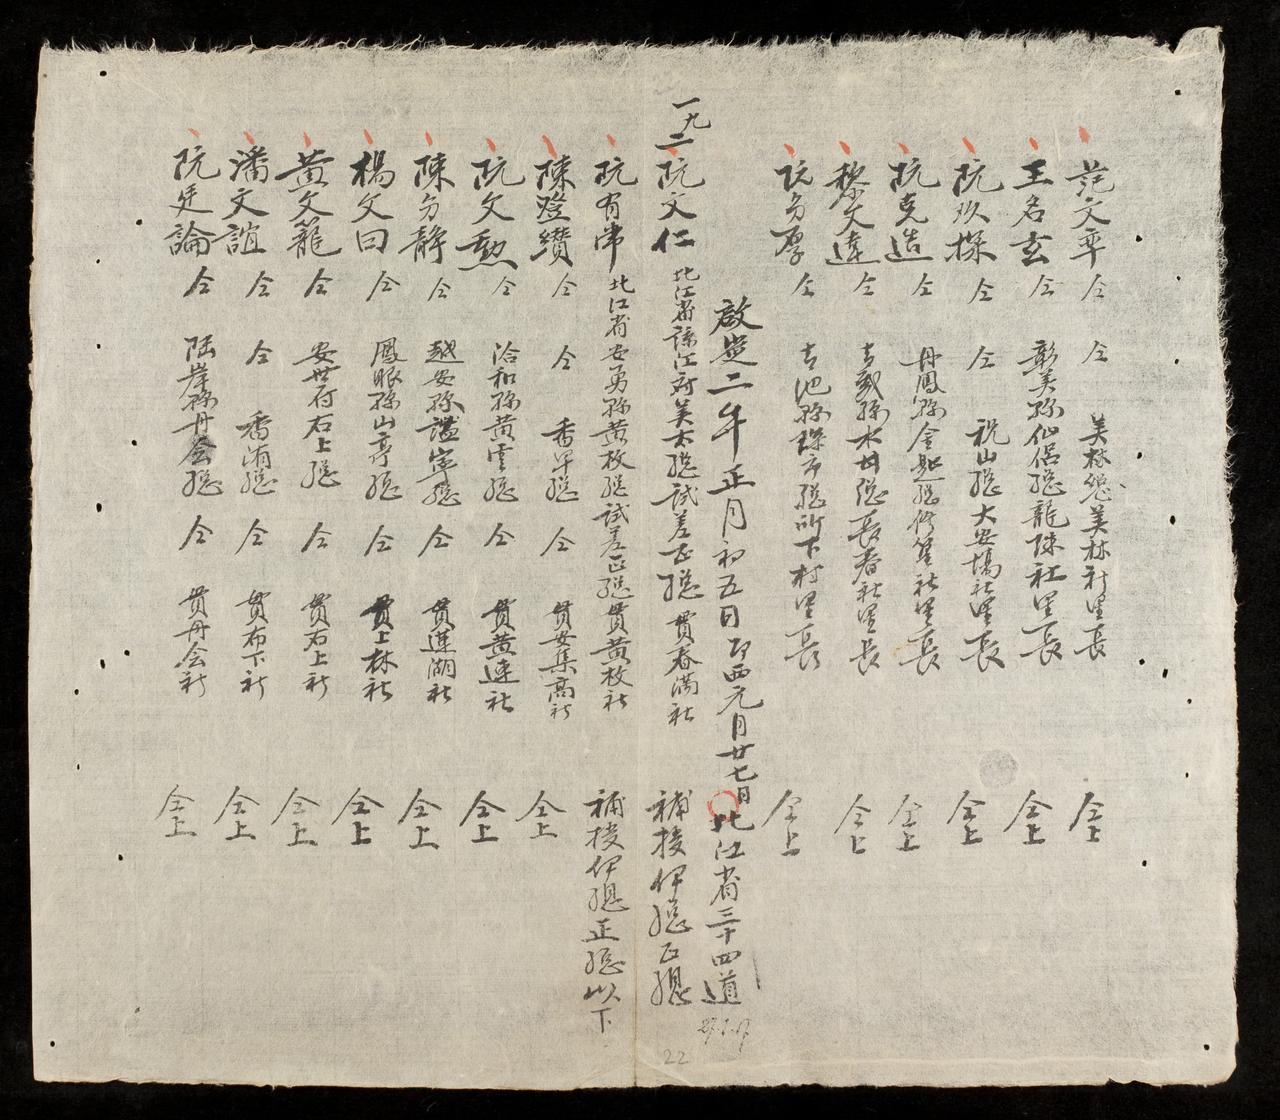 范文平 仝 仝 美林總美林社里長 仝上
王名玄 仝 彰美縣仙侶總龍陳社里長 仝上
阮玖探 仝 仝 祝山總大安塲社里長 仝上
阮克造 仝 丹鳳縣金匙總脩篁社里長 仝上
黎文達 仝 青威縣水母總長春社里長 仝上
阮分厚 仝 青池縣 市總所下村里長 仝上
啟定二年正月初五日即西元月廿七日 北江省三十四道
一九二 阮文仁 北江省諒江府美太總試差正總貫春滿社 補授伊總正總
阮有常 北江省安勇縣黃枚總試差正總貫黃枚社 補授伊總正總以下
陳登纘 仝 仝 香早總 仝 貫安集高社 仝上
阮文勲 仝 洽和縣黃雲總 仝 貫黃連社 仝上
陳分靜 仝 越安縣謐寧總 仝 貫蓮湖社 仝上
楊文曰 仝 鳳眼縣山亭總 仝 貫上林社 仝上
黃文籠 仝 安世府石上總 仝 貫石上社 仝上
潘文誼 仝 仝 香淆總 仝 貫布下社 仝上
阮廷論 仝 陸岸縣丹会總 仝 貫丹会社 仝上
22